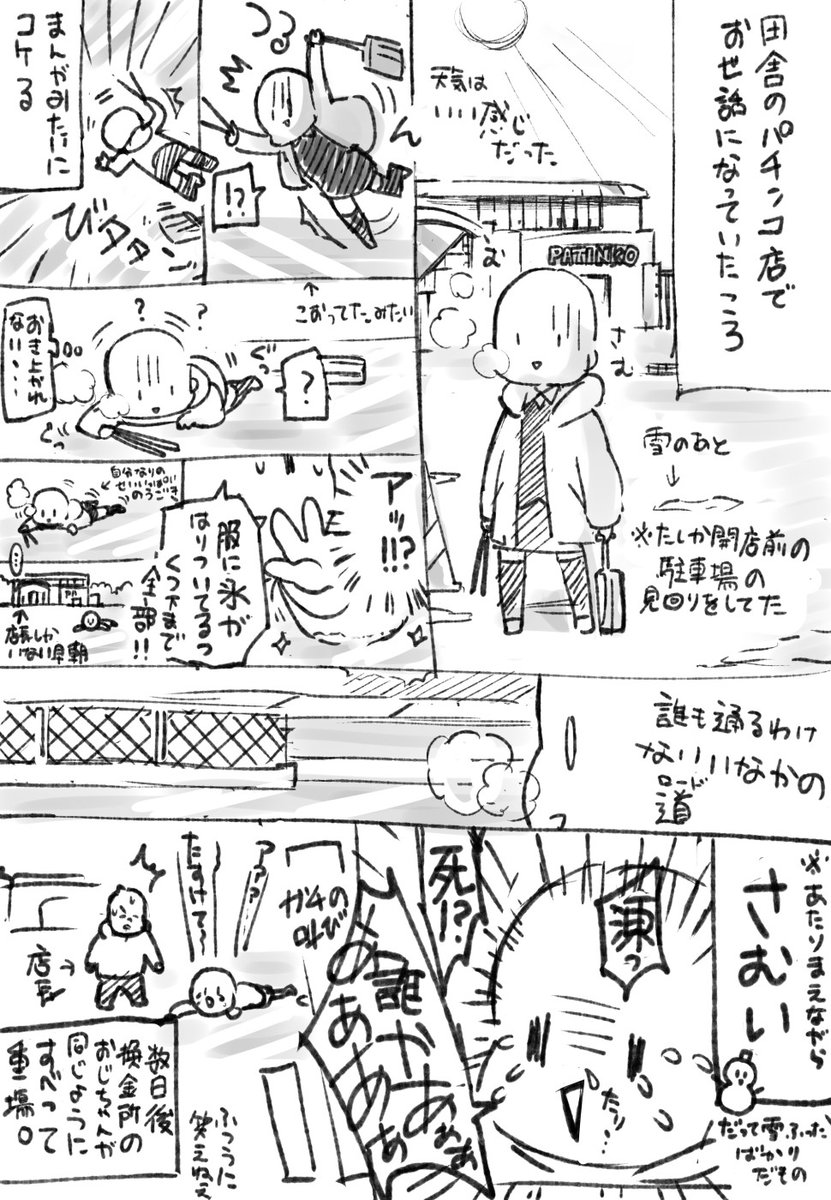 田舎のパチンコ店で
お世話になっていたころ
天気は
いい感じ
だった
PATINKO
さむ
さむ
雪のあと
※たしか開店前の
駐車場の
見回りをしてた
つる
ん
!?
まんがみたいに
コケる
びタタン
こおってたみたい
?
?
?
ぐっ
ぐっ
おき上がれ
ない・・・
アッ!!?
服に氷が
はりついてるっ
くつ下まで
全部!!
自分なりの
せいいっぱいの
うごき
店長しか
いない早朝
誰も通るわけ
ないいなかの
ロード
道
※あたりまえながら
さむい
だって雪ふった
ばかり
だもの
凍っ
たり…
死!?
誰かあぁぁ
ガチの
叫び
アアア
たすけて〜
店長
数日後
換金所の
おじちゃんが
同じように
すべって
重傷。
ふつうに
笑えねぇ